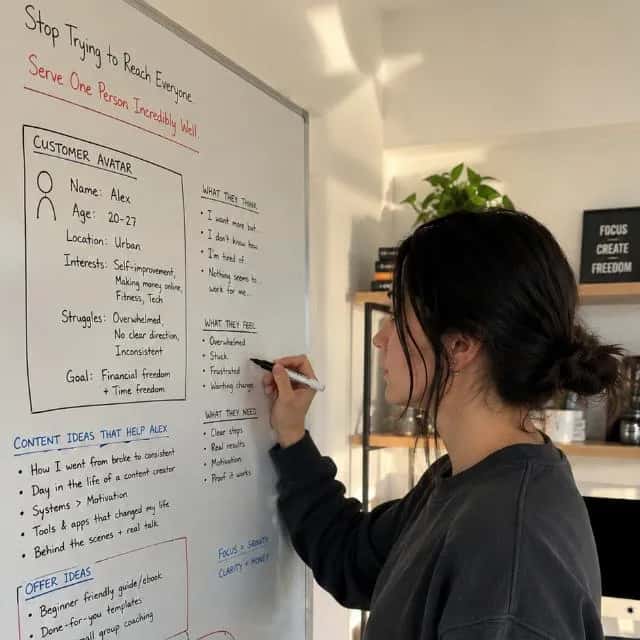 Stop Trying to Reach Everyone
Serve One Person Incredibly Well.
CUSTOMER AVATAR
Name: Alex
Age: 20-27
Location: Urban
Interests: Self-improvement,
Making money online,
Fitness, Tech
Struggles: Overwhelmed,
No clear direction,
Inconsistent
Goal: Financial freedom
+ Time freedom
WHAT THEY THINK
• I want more but...
• I don't know how.
• I'm tired of
• Nothing seems to...
work for me...
WHAT THEY FEEL
• Overwhelmed
• Stuck
• Frustrated
• Wanting change
WHAT THEY NEED
• Clear steps
• Real results
• Motivation
• Proof it works
CONTENT IDEAS THAT HELP ALEX
• How I went from broke to consistent
• Day in the life of a content creator
• Systems > Motivation
• Tools & apps that changed my life
• Behind the scenes + real talk
OFFER IDEAS
• Beginner friendly guide/ebook
• Done-for-you templates
group coaching
FOCUS = GROWTH
CLARITY = MONEY
FOCUS
CREATE
FREEDOM